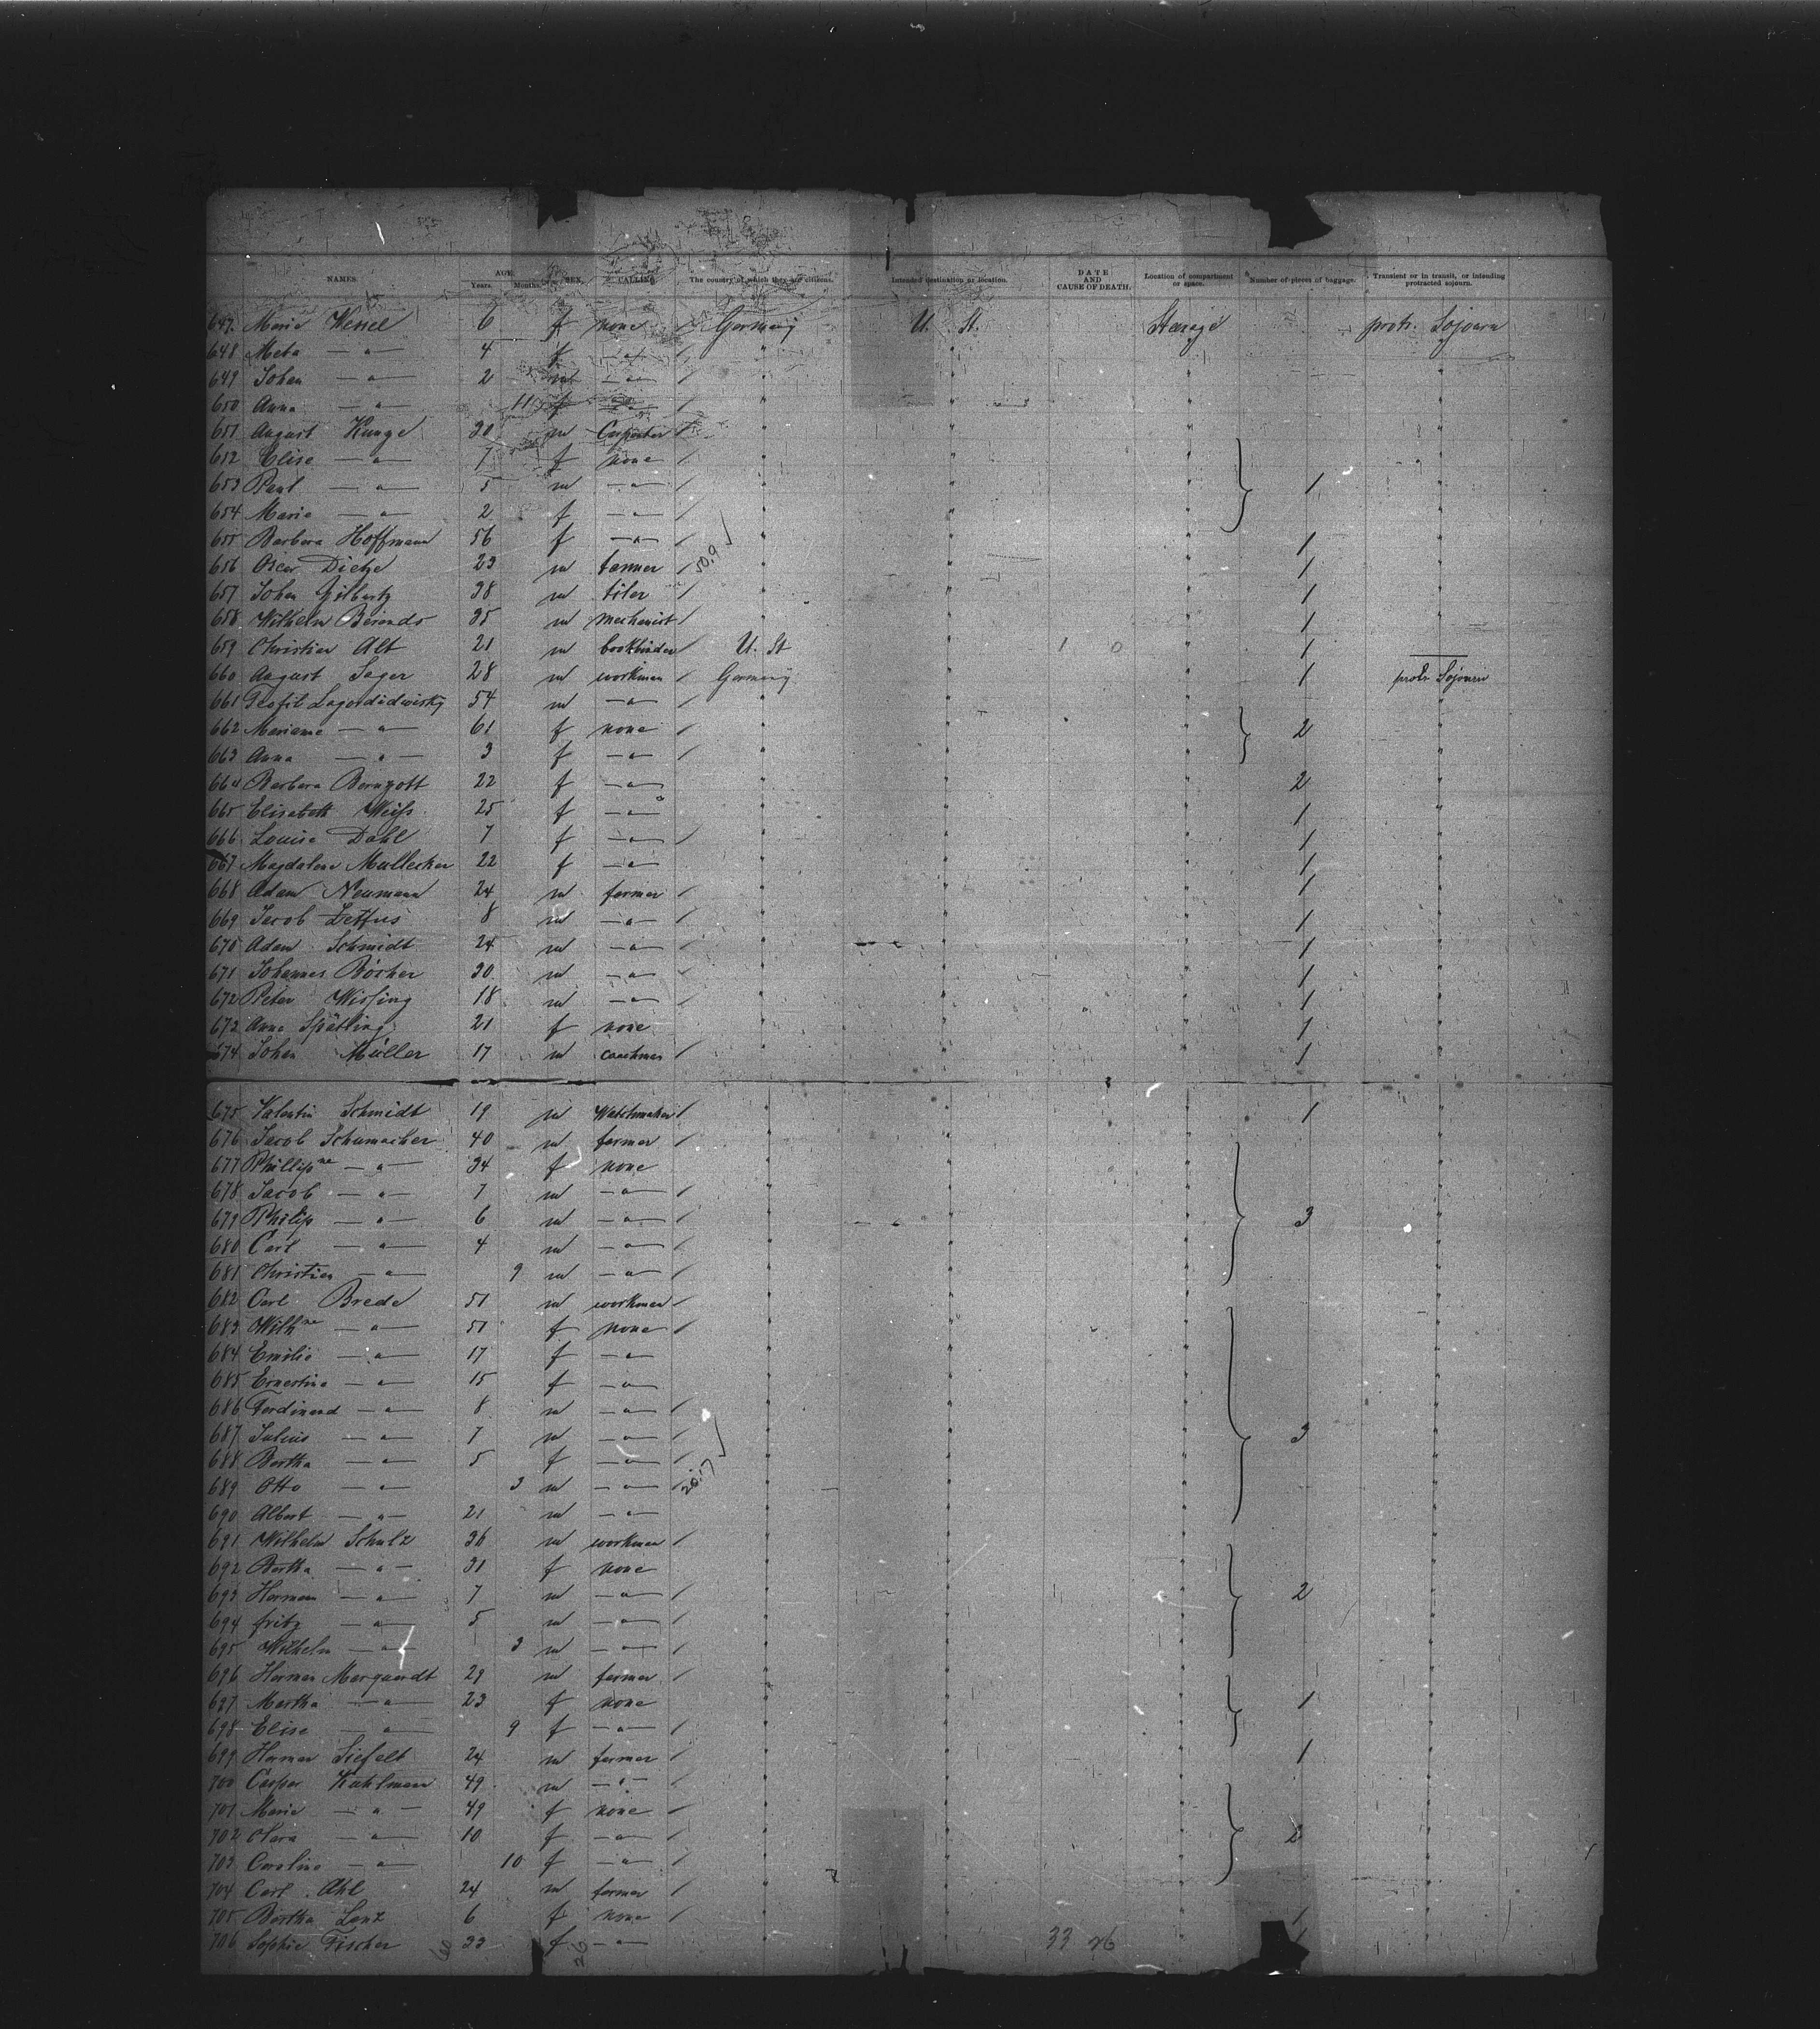 NAMES. AGE. Years. Months. SEX. CALLING. The country of which they are citizens. Intended destination or location. DATE AND CAUSE OF DEATH. Location of compartment or space. Number of pieces of baggage. Transient or in transit, or intending protracted sojourn.
647 Marie Wessel 6 f none / Germany U. St. Steerage protr. Sojourn
648 Meta — " — 4 f — " — / " " " "
649 Johan — " — 2 m — " — / " " " "
650 Anna — " — 11 f — " — / " " " "
651 August Kunze 30 m Carpenter / " " " "
652 Elise — " — 7 f none / " " " "
653 Paul — " — 5 m — " — / " " " 1 "
654 Marie — " — 2 f — " — / " " " "
655 Barbara Hoffmann 56 f — " — / " " " 1 "
656 Oscar Dietze 23 m tanner / 50.9 " " " 1 "
657 Johan Gilbertz 38 m tiler / " " " 1 "
658 Wilhelm Berends 35 m mechanist / " " " 1 "
659 Christian Alt 21 m bookbinder / U. St " 1 0 " 1 —
660 August Sager 28 m workman / Germany " " 1 protr Sojourn
661 54 m — " — / " " " "
662 Marianne — " — 61 f none / " " " 2 "
663 Anna — " — 3 f — " — / " " " "
664 Barbara Berngott 22 f — " — " " " 2 "
665 Elisabeth Weiss 25 f — " — " " " 1 "
666 Louise Dahl 7 f — " — / " " " 1 "
667 Magdalena Mullecker 22 f — " — " " " 1 "
668 Adam Neumann 24 m farmer / " " " 1 "
669 Jacob Zettus 8 m — " — / " " " 1 "
670 Adam Schmidt 24 m — " — / " " " 1 "
671 Johannes Böcher 30 m — " — / " " " 1 "
672 Peter Wissing 18 m — " — / " " " 1 "
673 Anna Spätling 21 f none " " " 1 "
674 Johan Müller 17 m coachman / " " " 1 "
675 Valentin Schmidt 19 m Watchmaker / " " " 1 "
676 Jacob Schumacher 40 m farmer / " " " "
677 Phillipne — " — 34 f none " " " "
678 Jacob — " — 7 m — " — / " " " "
679 Philip — " — 6 m — " — / " " " 3 "
680 Carl — " — 4 m — " — / " " " "
681 Christian — " — 9 m — " — / " " " "
682 Carl Brede 51 m workman / " " " "
683 Wilhne — " — 51 f none / " " " "
684 Emilie — " — 17 f — " — " " " "
685 Ernestine — " — 15 f — " — " " " "
686 Ferdinand — " — 8 m — " — / " " " "
687 Julius — " — 7 m — " — / " " " 3 "
688 Bertha — " — 5 f — " — / " " " "
689 Otto — " — 3 m — " — / 20.17 " " " "
690 Albert — " — 21 m — " — " " " "
691 Wilhelm Schulz 36 m workman / " " " "
692 Bertha — " — 31 f none " " " "
693 Herman — " — 7 m — " — / " " " 2 "
694 fritz — " — 5 m — " — / " " " "
695 Wilhelm — " — 3 m — " — / " " " "
696 Herman Marquardt 29 m farmer / " " " "
697 Martha — " — 23 f none " " " 1 "
698 Elise — " — 9 f — " — / " " " "
699 Herman Siefelt 24 m farmer / " " " 1 "
700 Casper Kuhlmann 49 m — " — / " " " "
701 Marie — " — 49 f none / " " " "
702 Clara — " — 10 f — " — / " " " 2 "
703 Caroline — " — 10 f — " — / " " " "
704 Carl Ahl 24 m farmer / " " " "
705 Bertha Lenz 6 f none / " " " 1 "
706 Sophie Fischer 60 33 f 26 — " — " " 33 26 " 1 "